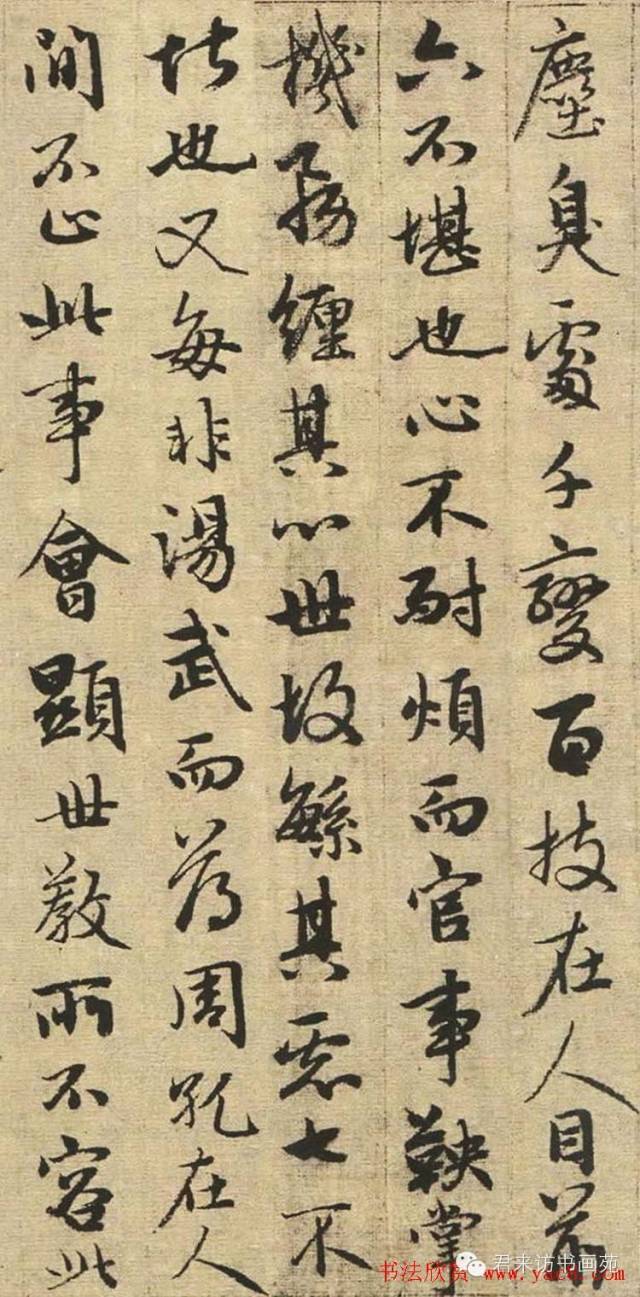 塵臭處千變百技在人目前
六不堪也心不耐煩而官事鞅掌
機務纏其心世故繁其慮七不
堪也又每非湯武而薄周孔在人
間不止此事會顯世教所不容此
君来访书画苑
书法欣赏 www.yac8.com